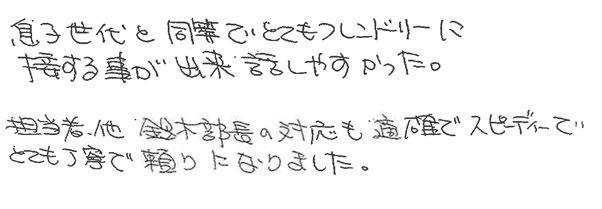 息子世代と同等でとてもフレンドリーに
接する事が出来話しやすかった。
担当者、他 鈴木部長の対応も適確でスピーディーで
とても丁寧で頼りになりました。